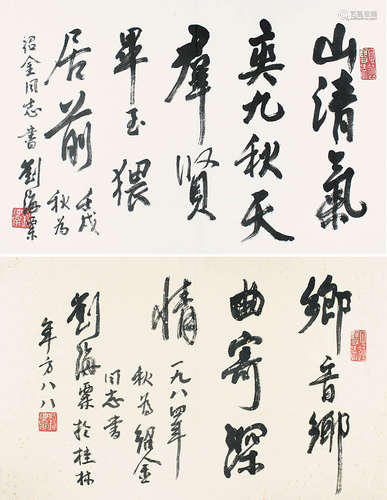 山清氣
爽九秋天
群賢
畢至猥
居前
壬戌
秋為
紹金同志書劉海粟
鄉音鄉
曲寄深
情
一九八四年
秋為紹金
同志書
劉海粟於桂林
年方八八